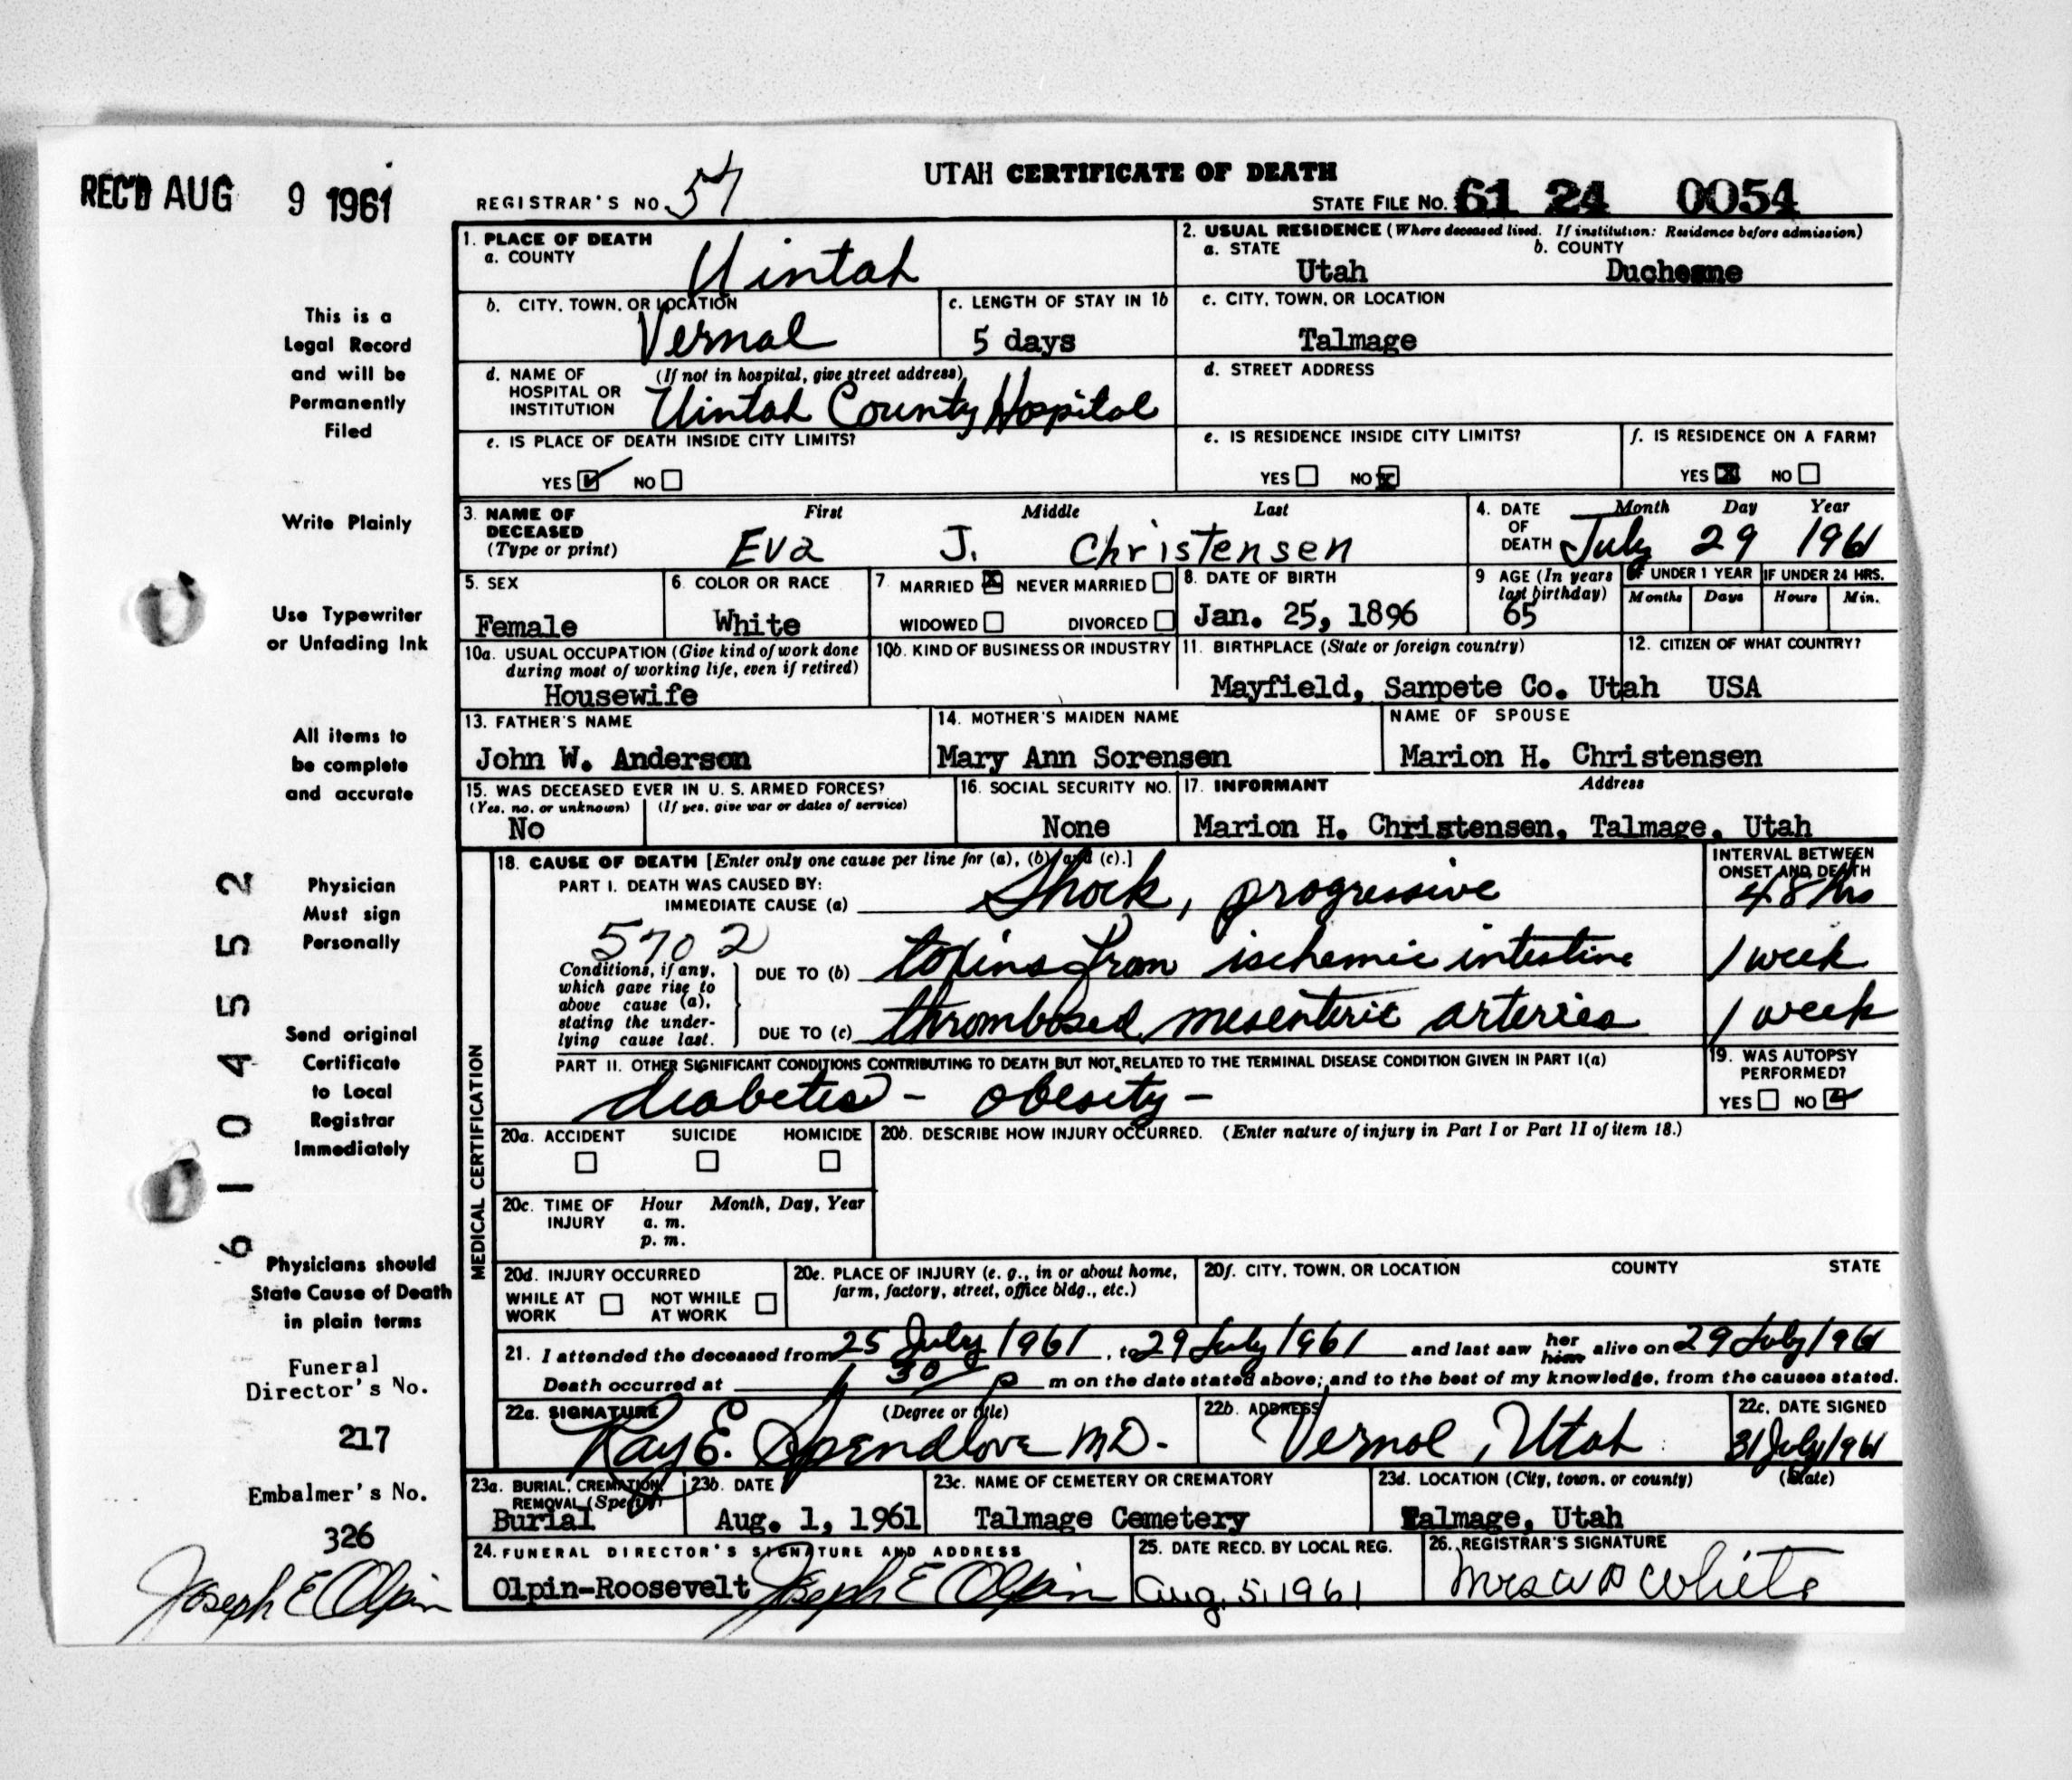 REC'D AUG 9 1961
UTAH CERTIFICATE OF DEATH
REGISTRAR'S NO. 57
STATE FILE No. 61 24 0054
1. PLACE OF DEATH
a. COUNTY
Uintah
2. USUAL RESIDENCE (Where deceased lived. If institution: Residence before admission)
a. STATE b. COUNTY
Utah Duchesne
b. CITY, TOWN, OR LOCATION
Vernal
c. LENGTH OF STAY IN 1b
5 days
c. CITY, TOWN, OR LOCATION
Talmage
d. NAME OF HOSPITAL OR INSTITUTION (If not in hospital, give street address)
Uintah County Hospital
d. STREET ADDRESS
e. IS PLACE OF DEATH INSIDE CITY LIMITS?
YES NO
e. IS RESIDENCE INSIDE CITY LIMITS?
YES NO
f. IS RESIDENCE ON A FARM?
YES NO
3. NAME OF DECEASED (Type or print)
First Middle Last
Eva J. Christensen
4. DATE OF DEATH
Month Day Year
July 29 1961
5. SEX
Female
6. COLOR OR RACE
White
7 MARRIED NEVER MARRIED
WIDOWED DIVORCED
8. DATE OF BIRTH
Jan. 25, 1896
9 AGE (In years last birthday)
65
IF UNDER 1 YEAR IF UNDER 24 HRS.
Months Days Hours Min.
10a. USUAL OCCUPATION (Give kind of work done during most of working life, even if retired)
Housewife
10b. KIND OF BUSINESS OR INDUSTRY
11. BIRTHPLACE (State or foreign country)
Mayfield, Sanpete Co. Utah
12. CITIZEN OF WHAT COUNTRY?
USA
13. FATHER'S NAME
John W. Anderson
14. MOTHER'S MAIDEN NAME
Mary Ann Sorensen
NAME OF SPOUSE
Marion H. Christensen
15. WAS DECEASED EVER IN U. S. ARMED FORCES?
(Yes, no, or unknown) (If yes, give war or dates of service)
No
16. SOCIAL SECURITY NO.
None
17. INFORMANT Address
Marion H. Christensen, Talmage, Utah
MEDICAL CERTIFICATION
18. CAUSE OF DEATH [Enter only one cause per line for (a), (b) and (c).]
INTERVAL BETWEEN ONSET AND DEATH
PART I. DEATH WAS CAUSED BY:
IMMEDIATE CAUSE (a) Shock, progressive 48 hrs
5702
Conditions, if any, which gave rise to above cause (a), stating the underlying cause last.
DUE TO (b) toxins from ischemic intestine 1 week
DUE TO (c) thrombosed mesenteric arteries 1 week
PART II. OTHER SIGNIFICANT CONDITIONS CONTRIBUTING TO DEATH BUT NOT RELATED TO THE TERMINAL DISEASE CONDITION GIVEN IN PART I(a)
diabetes - obesity -
19. WAS AUTOPSY PERFORMED?
YES NO
20a. ACCIDENT SUICIDE HOMICIDE
20b. DESCRIBE HOW INJURY OCCURRED. (Enter nature of injury in Part I or Part II of item 18.)
20c. TIME OF INJURY Hour Month, Day, Year
a. m.
p. m.
20d. INJURY OCCURRED
WHILE AT WORK NOT WHILE AT WORK
20e. PLACE OF INJURY (e. g., in or about home, farm, factory, street, office bldg., etc.)
20f. CITY, TOWN, OR LOCATION COUNTY STATE
21. I attended the deceased from 25 July 1961, to 29 July 1961 and last saw her him alive on 29 July 1961
Death occurred at 1 30 p m on the date stated above; and to the best of my knowledge, from the causes stated.
22a. SIGNATURE (Degree or title)
Ray E. Spendlove MD.
22b. ADDRESS
Vernal, Utah
22c. DATE SIGNED
31 July 1961
23a. BURIAL, CREMATION, REMOVAL (Specify)
Burial
23b. DATE
Aug. 1, 1961
23c. NAME OF CEMETERY OR CREMATORY
Talmage Cemetery
23d. LOCATION (City, town, or county) (State)
Talmage, Utah
24. FUNERAL DIRECTOR'S SIGNATURE AND ADDRESS
Olpin-Roosevelt Joseph E Olpin
25. DATE RECD. BY LOCAL REG.
Aug. 5, 1961
26. REGISTRAR'S SIGNATURE
Mrs W D White
This is a
Legal Record
and will be
Permanently
Filed
Write Plainly
Use Typewriter
or Unfading Ink
All items to
be complete
and accurate
Physician
Must sign
Personally
Send original
Certificate
to Local
Registrar
Immediately
Physicians should
State Cause of Death
in plain terms
Funeral
Director's No.
217
Embalmer's No.
326
Joseph E Olpin
61045552